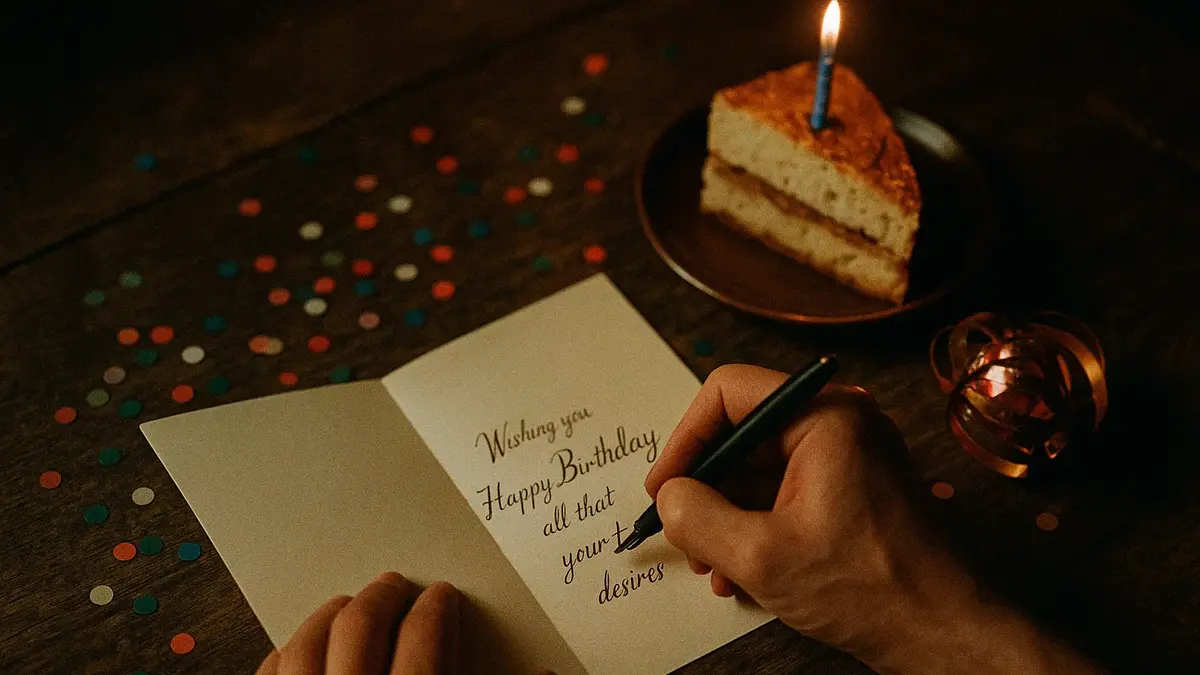 Wishing you
Happy Birthday
all that
your t
desires